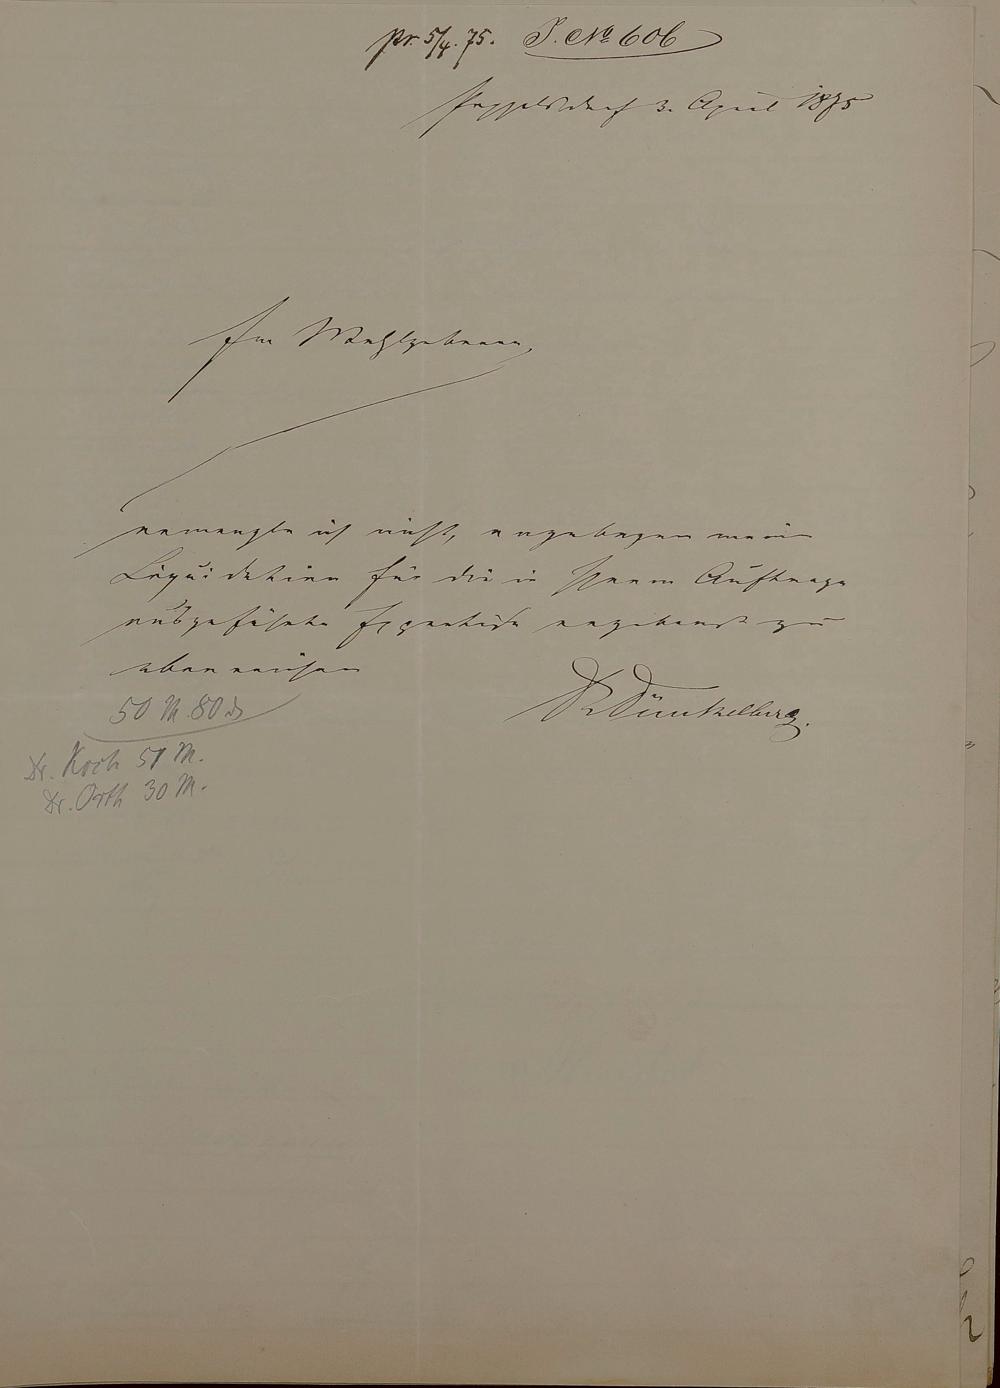 pr. 5/4. 75. J. No 606
Poppelsdorf 3. April 1875
Ew Wohlgeboren,
ermangle ich nicht, angebogen meine
Liquidation für die in Ihrem Auftrage
ausgeführte Expertise ergebenst zu
überreichen
Dünkelberg.
50 M. 80 d
Dr. Koch 51 M.
Dr. Orth 30 M.